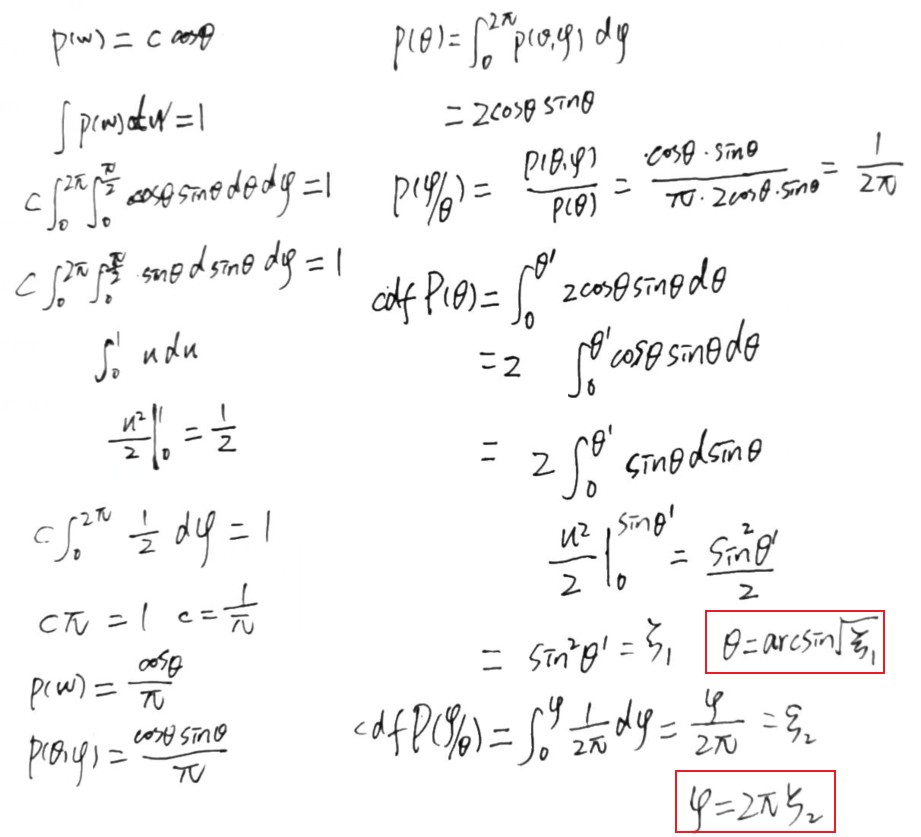 p(w) = c cosθ
∫ p(w) dw = 1
c ∫₀^{2π} ∫₀^{π/2} cosθ sinθ dθ dφ = 1
c ∫₀^{2π} ∫₀^{π/2} · sinθ d sinθ dφ = 1
∫₀¹ u du
u²/2 |₀¹ = 1/2
c ∫₀^{2π} 1/2 dφ = 1
cπ = 1 c = 1/π
p(w) = cosθ/π
p(θ,φ) = cosθ sinθ/π
p(θ) = ∫₀^{2π} p(θ,φ) dφ
= 2cosθ sinθ
p(φ/θ) = p(θ,φ)/p(θ) = (cosθ · sinθ)/(π · 2cosθ · sinθ) = 1/2π
cdf P(θ) = ∫₀^{θ'} 2cosθ sinθ dθ
= 2 ∫₀^{θ'} cosθ sinθ dθ
= 2 ∫₀^{θ'} sinθ d sinθ
u²/2 |₀^{sinθ'} = sin²θ'/2
= sin²θ' = ξ₁ θ = arcsin√ξ₁
cdf P(φ/θ) = ∫₀^φ 1/2π dφ = φ/2π = ξ₂
φ = 2πξ₂